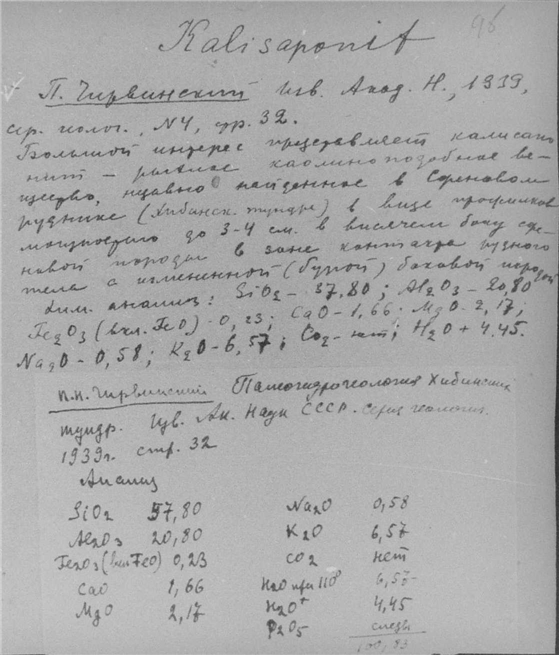 Kalisaponit
96
П. Чирвинский Изв. Акад. Н., 1939,
сер. геолог., N4, стр. 32.
Большой интерес представляет калисапо
нит – рыхлое каолиноподобное ве-
щество, недавно найденное в Сфеновом
руднике (Хибинск. тундра) в виде прожилков
мощностью до 3-4 см. в висячем боку сфе-
новой породы в зоне контакта рудного
тела с измененной (бурой) боковой породой
Хим. анализ: SiO2 – 57,80; Al2O3 – 20,80
Fe2O3 (вкл. FeO) – 0,23; CaO – 1,66. MgO – 2,17;
Na2O – 0,58; K2O – 6,57; CO2 – нет; H2O + 4,45.
П.Н. Чирвинский Палеогидрогеология Хибинских
тундр. Изв. Ак. Наук СССР. серия геология.
1939г. стр. 32
Анализ
SiO2 57,80 Na2O 0,58
Al2O3 20,80 K2O 6,57
Fe2O3 (вкл FeO) 0,23 CO2 нет
CaO 1,66 H2O при 110° 6,57
MgO 2,17 H2O+ 4,45
P2O5 следы
100,83